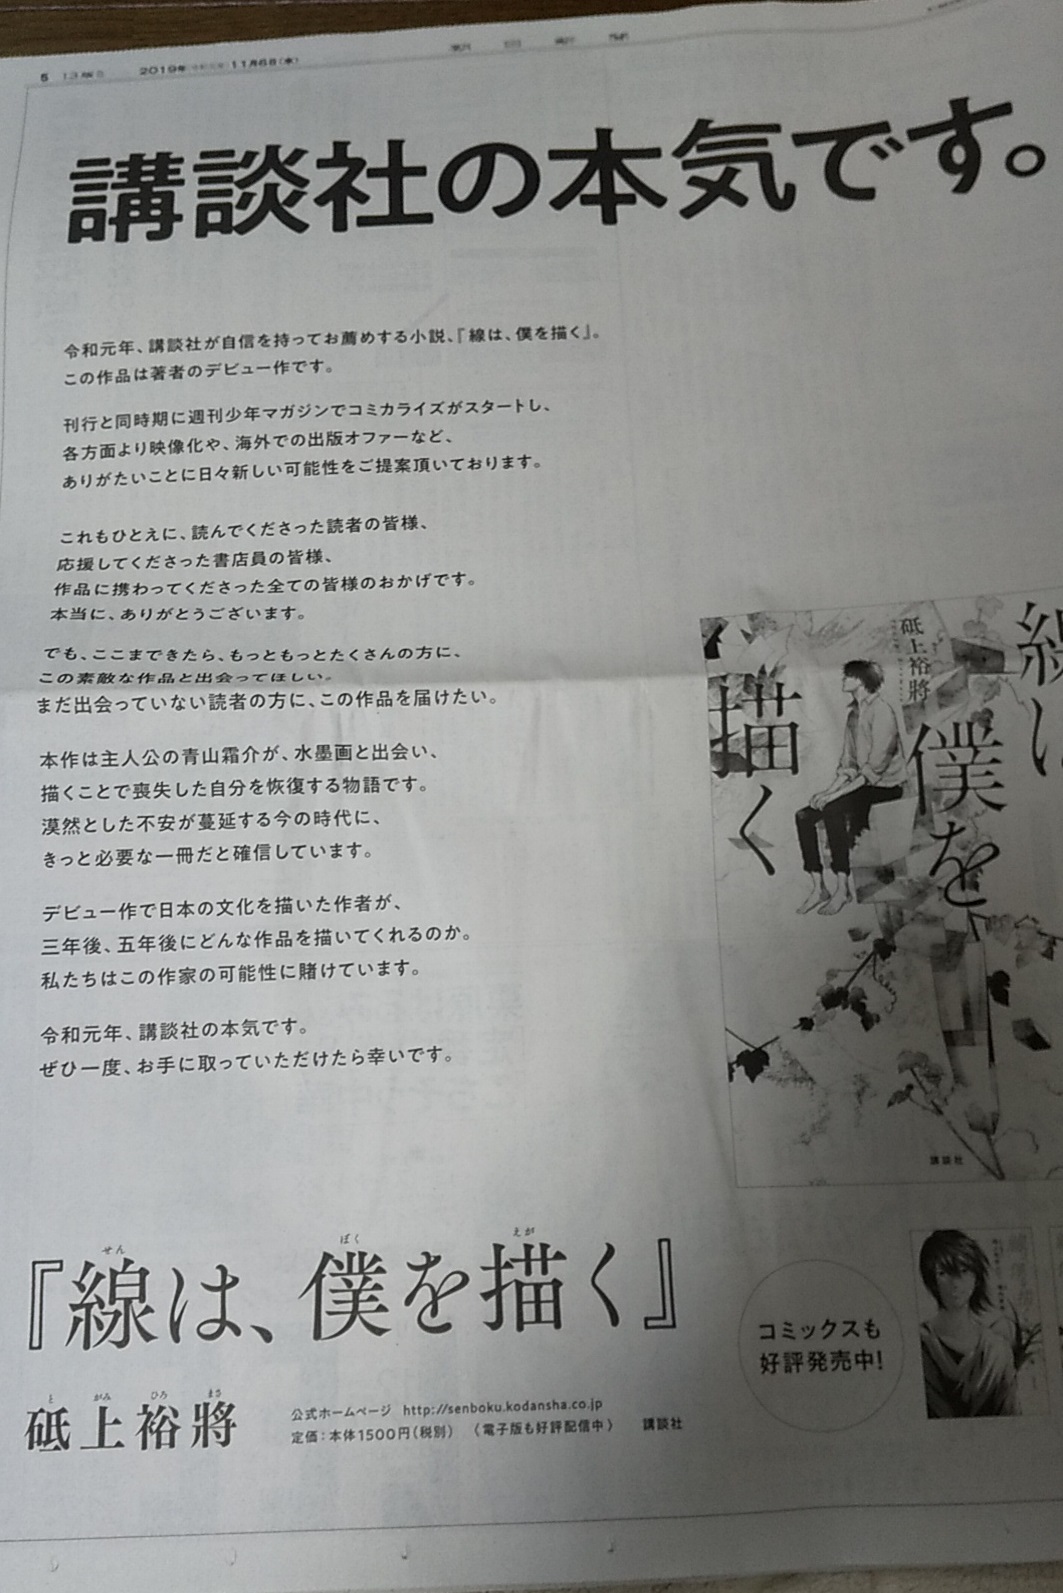 5
13版
2019年(令和元年)11月6日(水)
朝日新聞
講談社の本気です。
令和元年、講談社が自信を持ってお薦めする小説、『線は、僕を描く』。
この作品は著者のデビュー作です。
刊行と同時期に週刊少年マガジンでコミカライズがスタートし、
各方面より映像化や、海外での出版オファーなど、
ありがたいことに日々新しい可能性をご提案頂いております。
これもひとえに、読んでくださった読者の皆様、
応援してくださった書店員の皆様、
作品に携わってくださった全ての皆様のおかげです。
本当に、ありがとうございます。
でも、ここまできたら、もっともっとたくさんの方に、
この素敵な作品と出会ってほしい。
まだ出会っていない読者の方に、この作品を届けたい。
本作は主人公の青山霜介が、水墨画と出会い、
描くことで喪失した自分を恢復する物語です。
漠然とした不安が蔓延する今の時代に、
きっと必要な一冊だと確信しています。
デビュー作で日本の文化を描いた作者が、
三年後、五年後にどんな作品を描いてくれるのか。
私たちはこの作家の可能性に賭けています。
令和元年、講談社の本気です。
ぜひ一度、お手に取っていただけたら幸いです。
線は、
僕を
描く
砥上裕將
講談社
せん ぼく えが
『線は、僕を描く』
と がみ ひろ まさ
砥上裕將
公式ホームページ http://senboku.kodansha.co.jp
定価:本体1500円(税別) (電子版も好評配信中) 講談社
コミックスも
好評発売中!